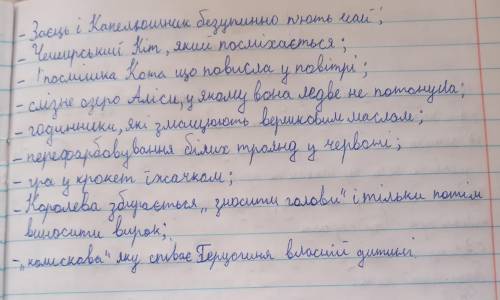 - Заєць і Капелюшник безупинно п'ють чай;
- Чеширський Кіт, який посміхається;
- посмішка Кота що повисла у повітрі;
- слізне озеро Аліси, у якому вона ледве не потонула;
- годинники, які змащюють вершковим маслом;
- перефарбовування білих троянд у червоні;
- гра у крокет їжачкам;
- Королева збирається „зносити голови" і тільки потім
виносити вирок;
- „колискова" яку співає Герцогиня власній дитині.